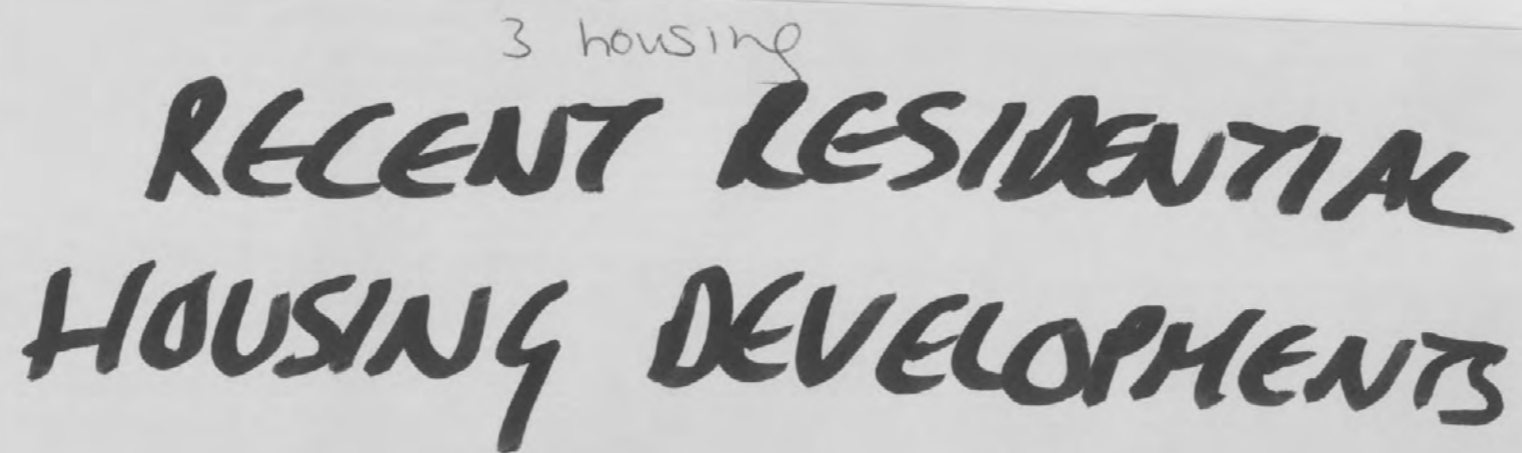 3 housing
RECENT RESIDENTIAL
HOUSING DEVELOPMENTS